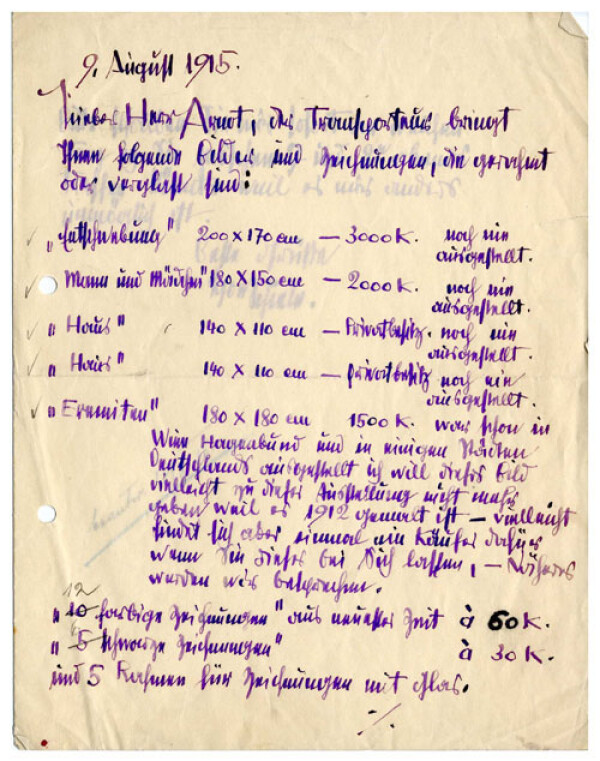 9. August 1915.
Lieber Herr Arnot, der Transporteur bringt
Ihnen folgende Bilder und Zeichnungen, die gerahmt
oder verglast sind:
„Entschwebung" 200 x 170 cm — 3000 K. noch nie
ausgestellt.
„Mann und Mädchen" 180 x 150 cm — 2000 K. noch nie
ausgestellt.
„Haus" 140 x 110 cm — Privatbesitz. noch nie
ausgestellt.
„Haus" 140 x 110 cm — Privatbesitz noch nie
ausgestellt.
„Eremiten" 180 x 180 cm 1500 K. war schon in
Wien Hagenbund und in einigen Städten
Deutschlands ausgestellt ich will dieses Bild
vielleicht zu dieser Ausstellung nicht mehr
geben weil es 1912 gemalt ist — vielleicht
findet sich aber einmal ein Käufer dafür
wenn Sie dieses bei Sich lassen, — Näheres
werden wir besprechen.
12
„10 farbige Zeichnungen" aus neuester Zeit à 60 K.
„5 schwarze Zeichnungen" à 30 K.
und 5 Rahmen für Zeichnungen mit Glas.
./.